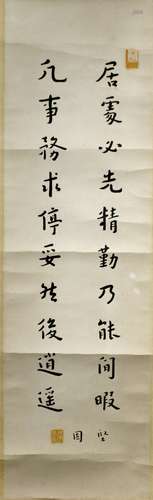 居處必先精勤乃能間暇
凡事務求停妥然後逍遥